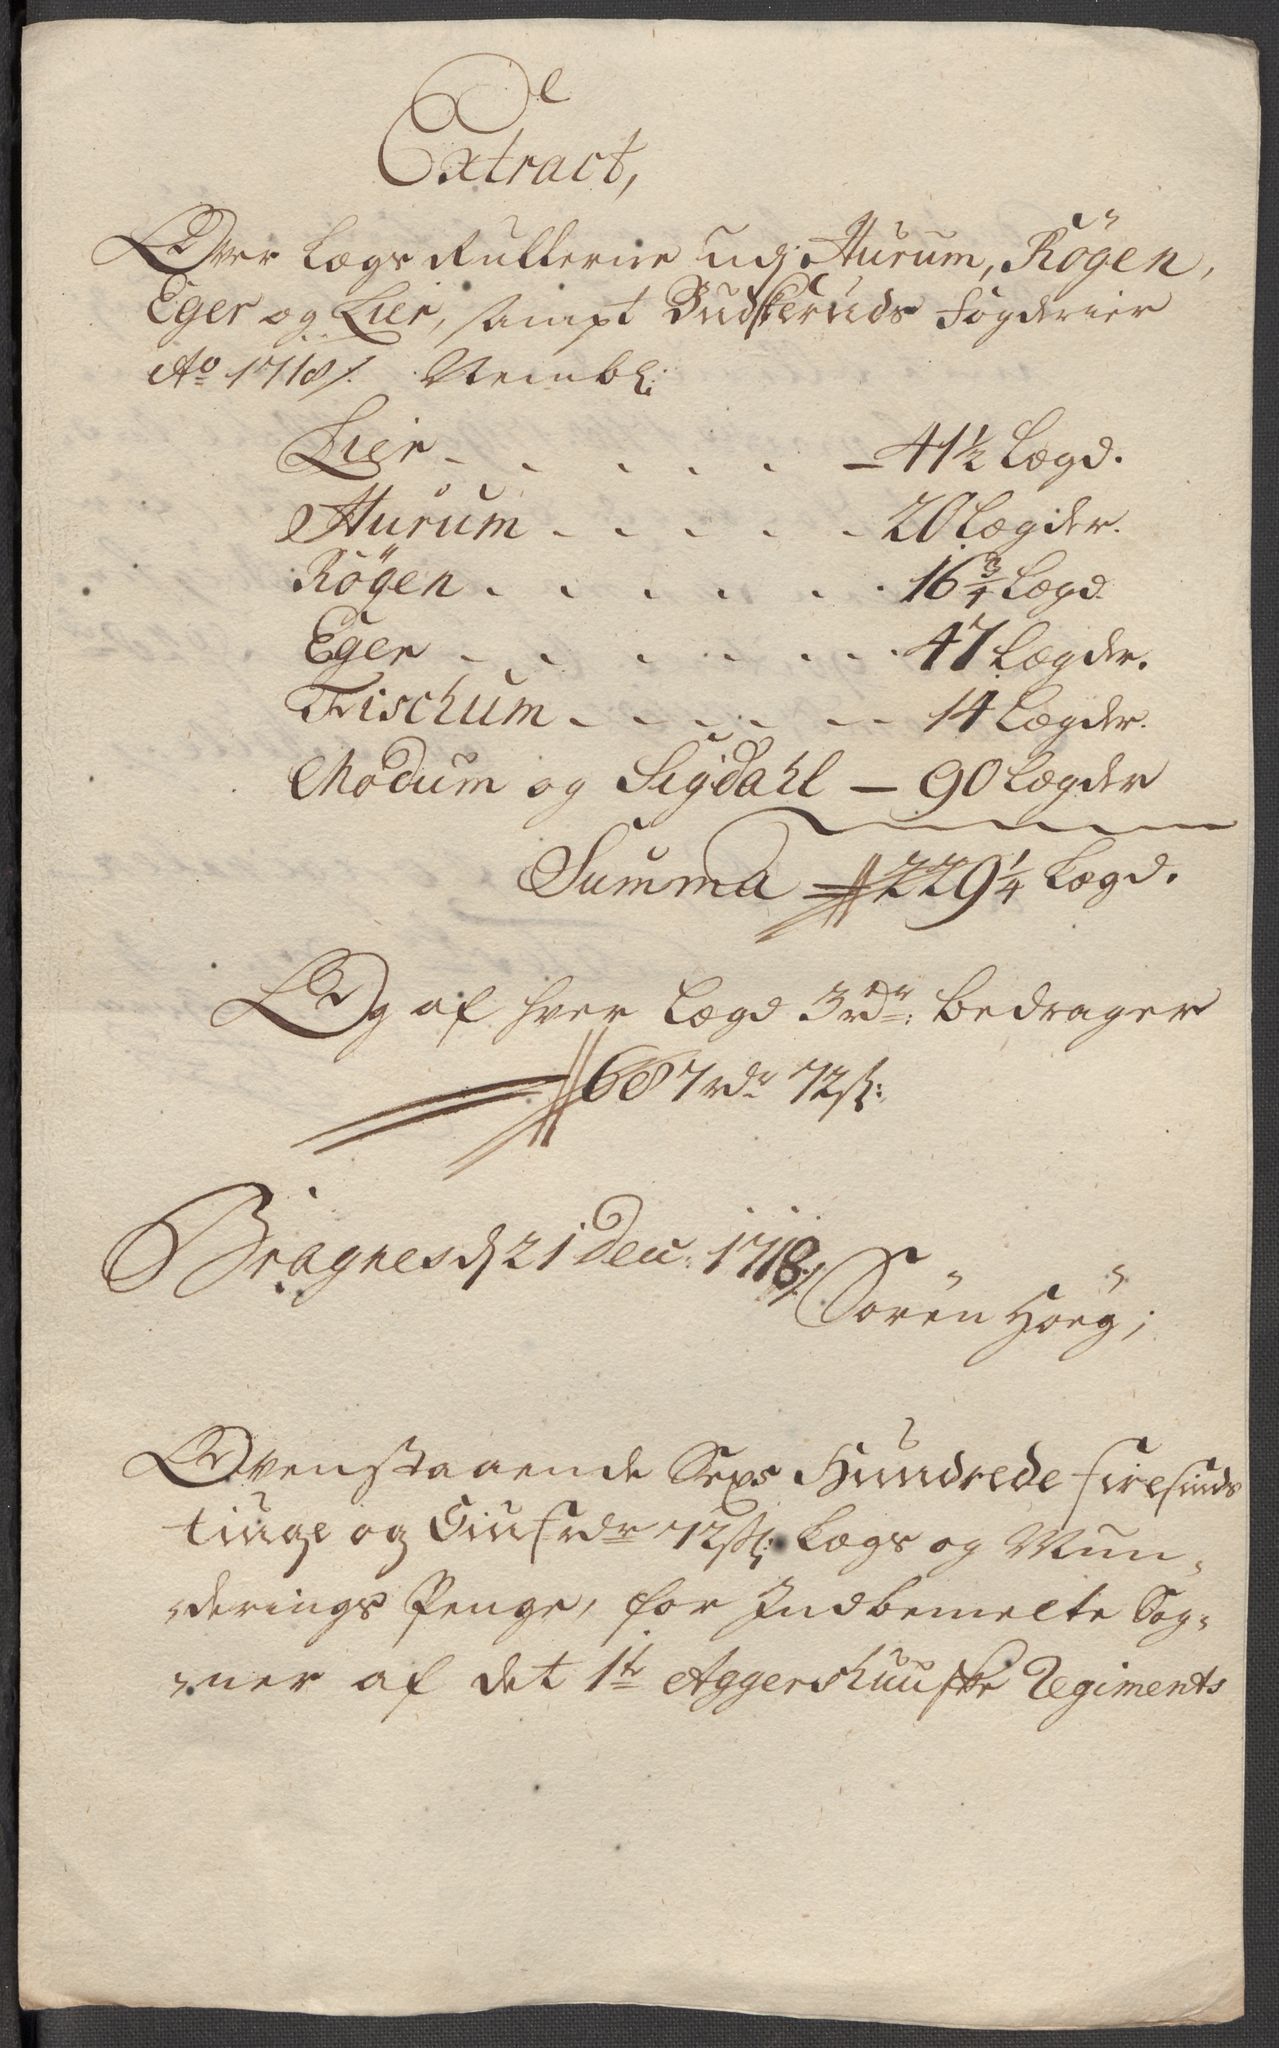 Extract,
Over Lægs Rullerne udj Hurum, Rögen,
Eger og Lier, sampt Budskeruds Fogderier
Ao 1718/. Nembl:
Lier - - - - - 41½ Lægd.
Hurum - - - - - 20 Lægder.
Rögen - - - - - - 16¾ Lægd
Eger - - - - - - - 47 Lægder.
Fischum - - - - - - 14 Lægder.
Modum og Sigdahl - 90 Lægder
Summa 229¼ Lægd.
Og af hver Lægd 3 rdr: bedrager
687 rdr 72 ß:
Bragnes d 21 Dec: 1718/.
Sören Höeg;
Ovenstaaende Sexs Hundrede firesinds
tiuge og Siuf rdr 72 ß: Lægs og Mun-
derings Penge, for Indbemelte Sog-
ner af det 1te Aggershuuske Regiments